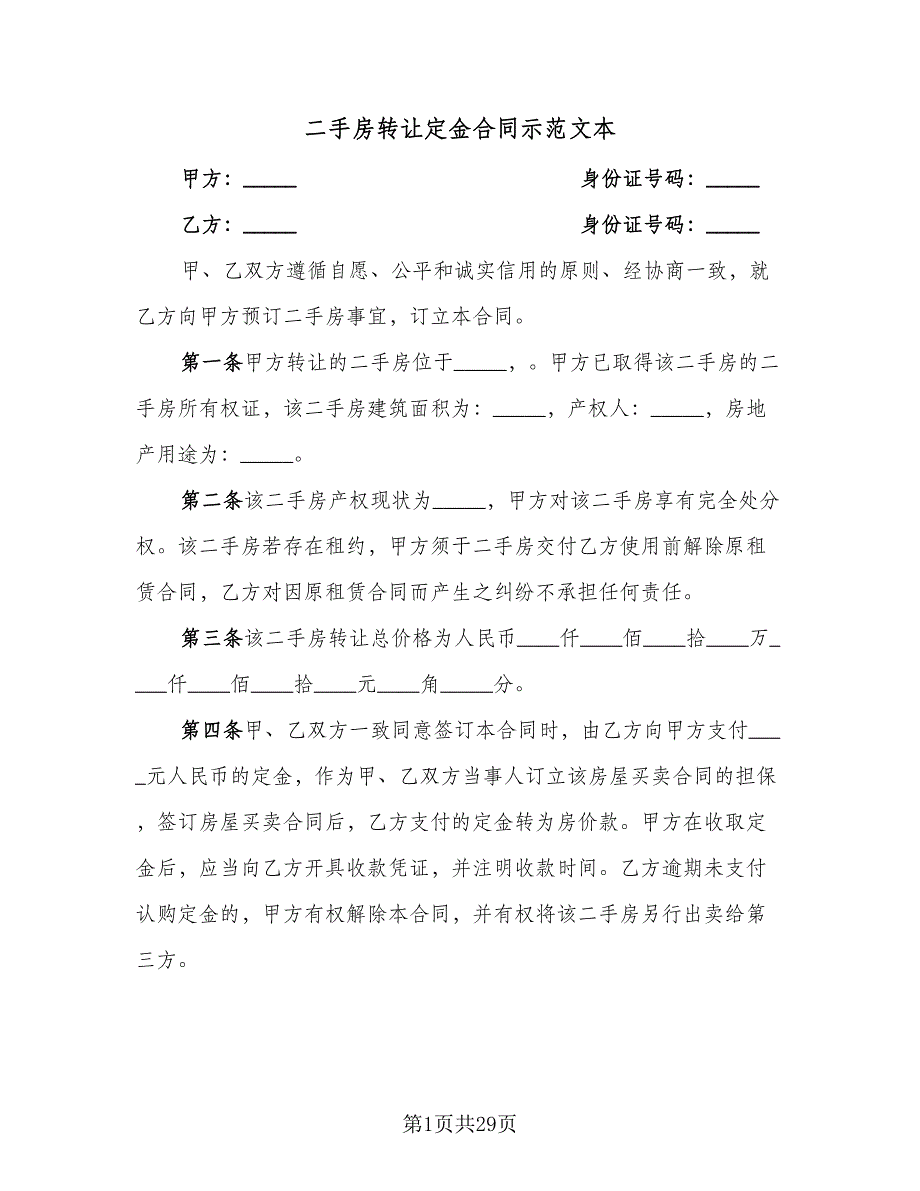 二手房转让定金合同示范文本
甲方：_____ 身份证号码：_____
乙方：_____ 身份证号码：_____
甲、乙双方遵循自愿、公平和诚实信用的原则、经协商一致，就
乙方向甲方预订二手房事宜，订立本合同。
第一条甲方转让的二手房位于_____，。甲方已取得该二手房的二
手房所有权证，该二手房建筑面积为：_____，产权人：_____，房地
产用途为：_____。
第二条该二手房产权现状为_____，甲方对该二手房享有完全处分
权。该二手房若存在租约，甲方须于二手房交付乙方使用前解除原租
赁合同，乙方对因原租赁合同而产生之纠纷不承担任何责任。
第三条该二手房转让总价格为人民币____仟____佰____拾____万_
___仟____佰____拾____元____角_____分。
第四条甲、乙双方一致同意签订本合同时，由乙方向甲方支付___
_元人民币的定金，作为甲、乙双方当事人订立该房屋买卖合同的担保
，签订房屋买卖合同后，乙方支付的定金转为房价款。甲方在收取定
金后，应当向乙方开具收款凭证，并注明收款时间。乙方逾期未支付
认购定金的，甲方有权解除本合同，并有权将该二手房另行出卖给第
三方。
第1页共29页